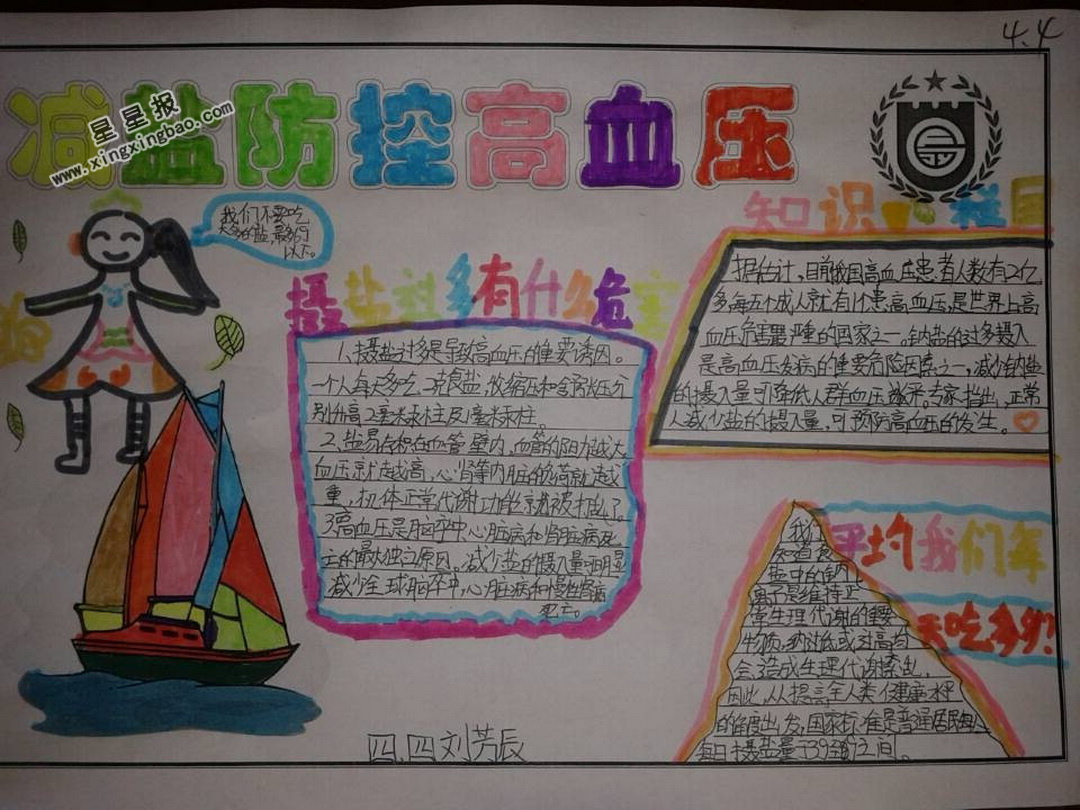 4.4
减盐防控高血压
星星报
www.xingxingbao.com
我们不要吃
太多的盐,最多6g
以下。
知识 栏目
据估计,目前我国高血压患者人数有2亿
多,每五个成人就有1个患高血压,是世界上高
血压危害最严重的国家之一。钠盐的过多摄入
是高血压发病的重要危险因素之一,减少钠盐
的摄入量可降低人群血压水平。专家指出,正常
人减少盐的摄入量,可预防高血压的发生。
摄盐过多有什么危害
1、摄盐过多是导致高血压的重要诱因。
一个人每天多吃2克食盐,收缩压和舒张压分
别升高2毫米汞柱及1毫米汞柱。
2、盐易结积在血管壁内,血管的阻力越大
血压就越高,心肾等内脏的负荷就越
重,机体正常代谢功能就被打乱了。
3高血压是脑卒中心脏病和肾脏病发
生的最大独立原因。减少盐的摄入量可明显
减少全球脑卒中,心脏病和慢性肾病
死亡。
平均我们每
天吃多少?
我们
知道食
盐中的钠
离子是维持正
常生理代谢的重要
物质,钠过低或过高均
会造成生理代谢紊乱,
因此,从提高全人类健康水平
的角度出发,国家标准是普通居民
每日摄盐量 之间。
四、四刘芳辰